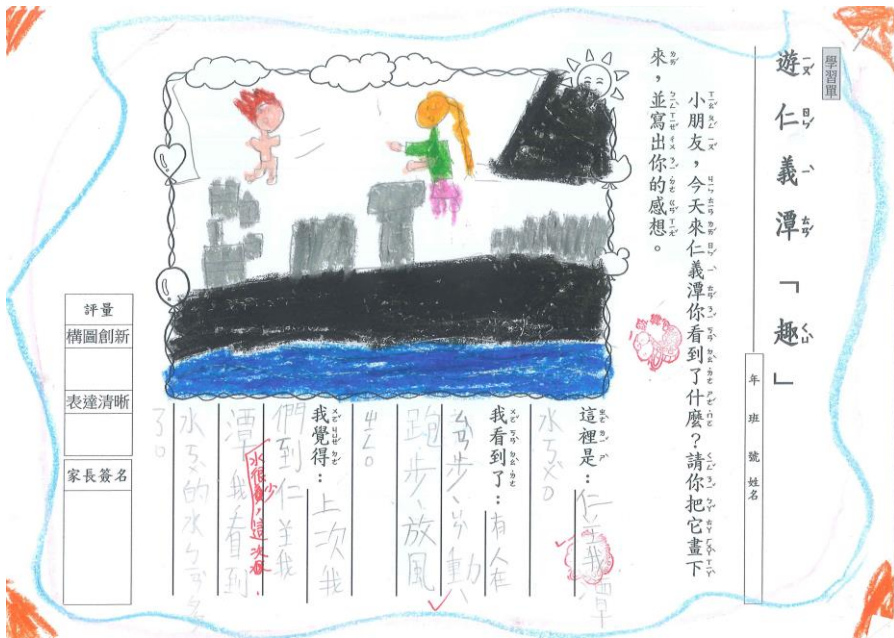 學習單
遊仁義潭「趣」
年 班 號 姓名
小朋友，今天來仁義潭你看到了什麼？請你把它畫下
來，並寫出你的感想。
這裡是：仁義潭
水ㄎㄨˋ。
我看到了：有人在
步、ㄩㄣˋ動、
跑步、放風
ㄓㄥ。
我覺得：上次我
們到仁義
水很少，這次
潭我看到
水ㄎㄨˋ的水ㄅㄧㄢˋ多
了。
評量
構圖創新
表達清晰
家長簽名